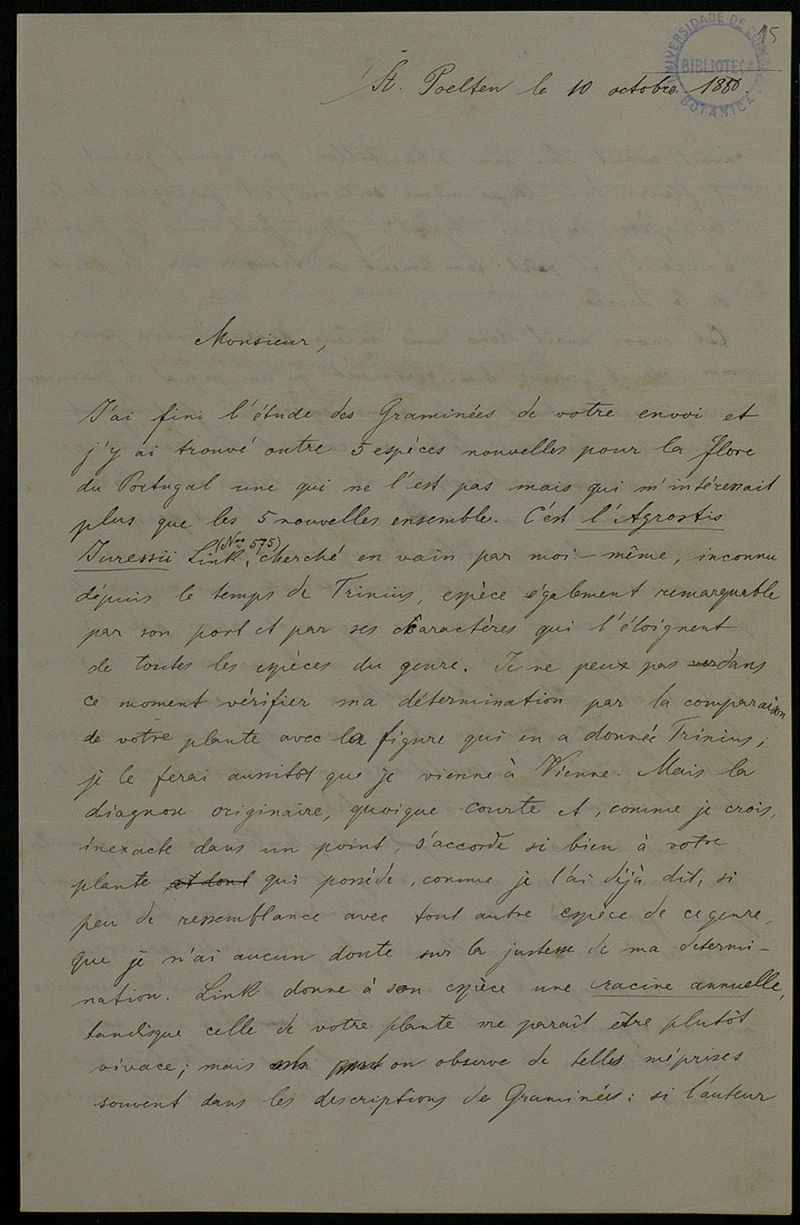 15
UNIVERSIDADE DE COIMBRA
BIBLIOTECA
BOTANICA
St. Poelten le 10 octobre 1880.
Monsieur,
J'ai fini l'étude des Graminées de votre envoi et
j'y ai trouvé outre 5 espèces nouvelles pour la flore
du Portugal une qui ne l'est pas mais qui m'intéressait
plus que les 5 nouvelles ensemble. C'est l'Agrostis
(Nro 575)
Juressii Link, cherché en vain par moi-même, inconnu
dépuis le temps de Trinius, espèce également remarquable
par son port et par ses charactères qui l'éloignent
de toutes les espèces du genre. Je ne peux pas dans
ce moment vérifier ma détermination par la comparaison
de votre plante avec la figure qui en a donnée Trinius;
je le ferai aussitôt que je vienne à Vienne. Mais la
diagnose originaire, quoique courte et, comme je crois,
inexacte dans un point, s'accorde si bien à votre
plante et dont qui possède, comme je l'ai déjà dit, si
peu de ressemblance avec tout autre espèce de ce genre,
que je n'ai aucun doute sur la justesse de ma determi-
nation. Link donne à son espèce une racine annuelle,
tandisque celle de votre plante me parait être plutôt
vivace; mais on observe de telles méprises
souvent dans les descriptions de Graminées: si l'auteur